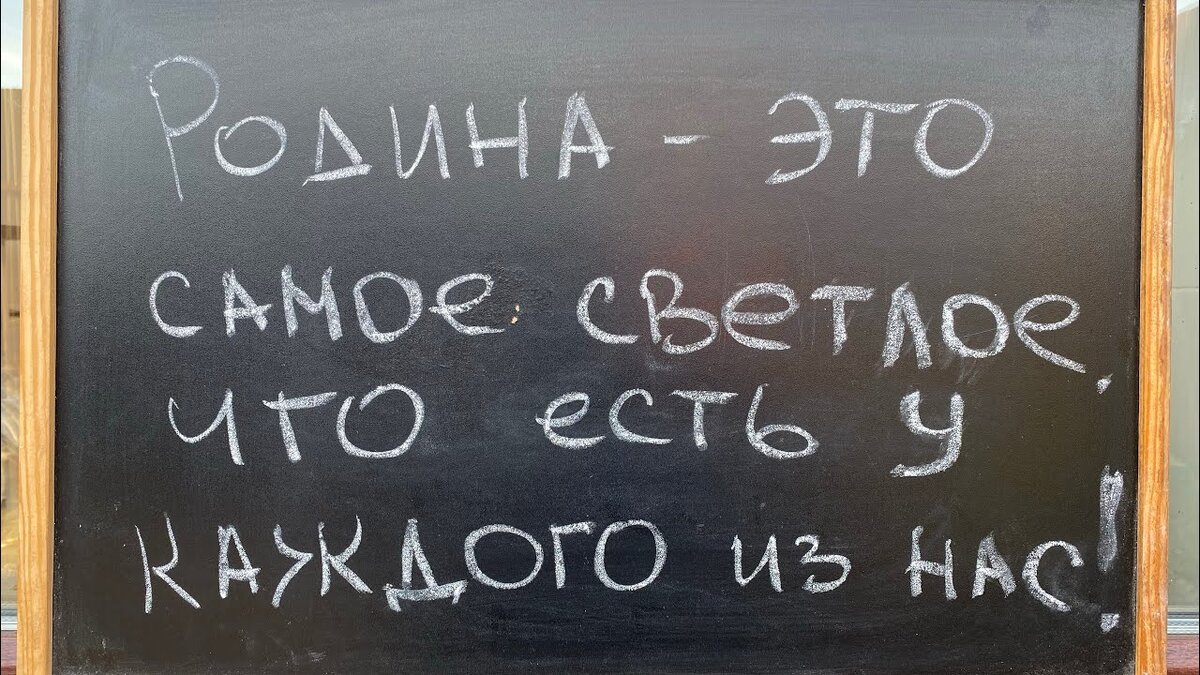 Родина - это
самое светлое,
что есть у
каждого из нас!